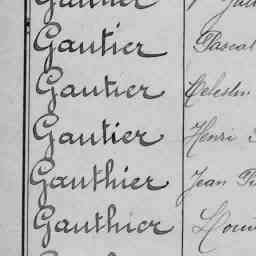 Gautier Pascal
Gautier Celestin
Gautier Henri
Gauthier Jean
Gauthier Louis